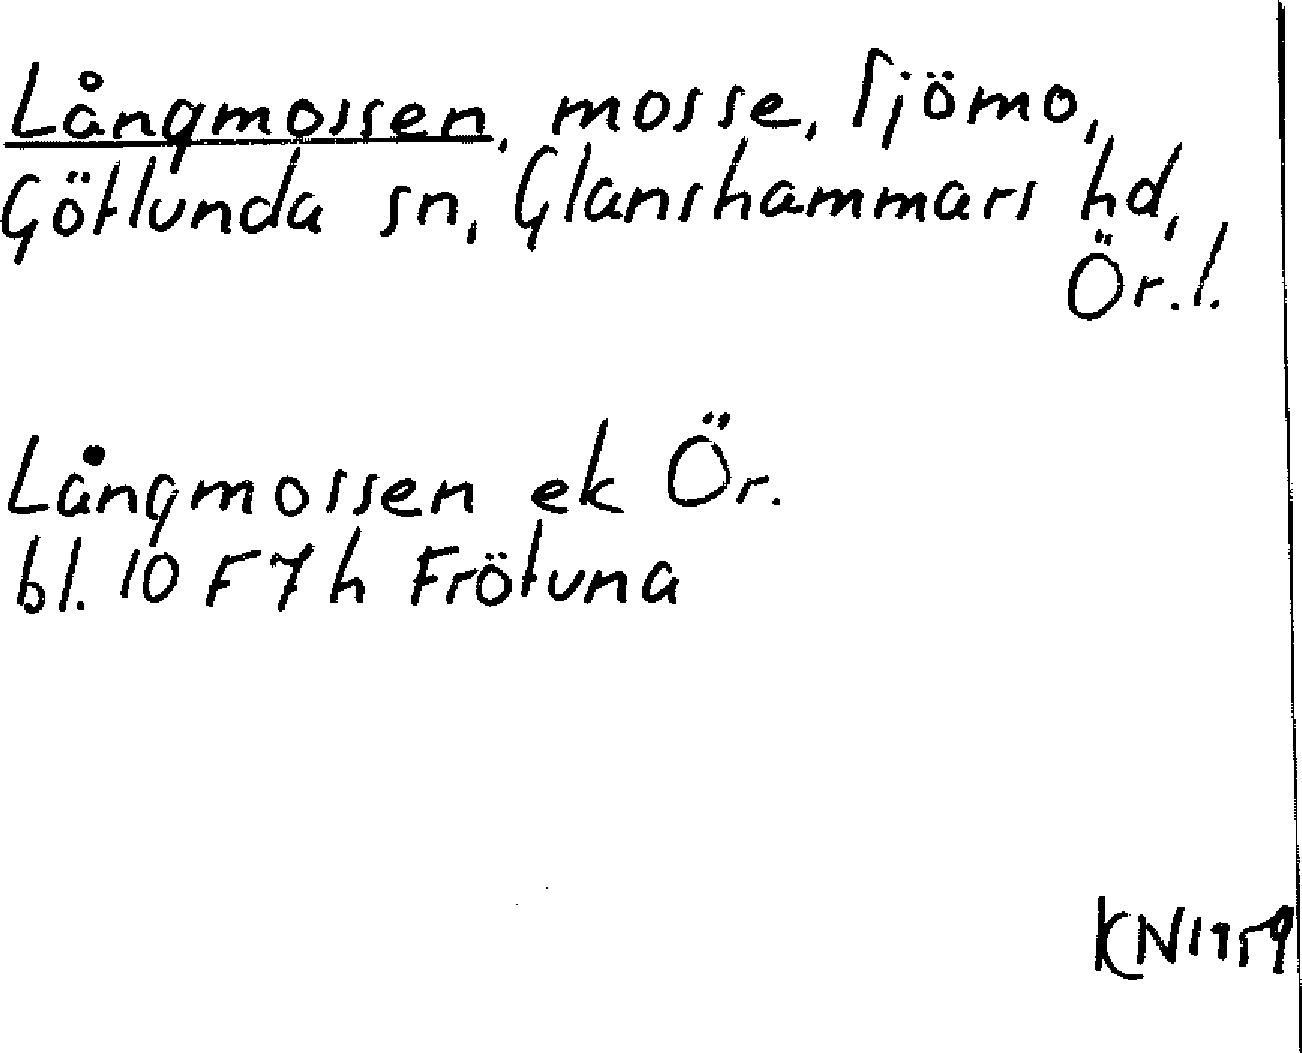 Långmossen, mosse, Sjömo,
Götlunda sn, Glanshammars hd,
Ör.l.
Långmossen ek Ör.
bl. 10 F 7 h Frötuna
KN1959